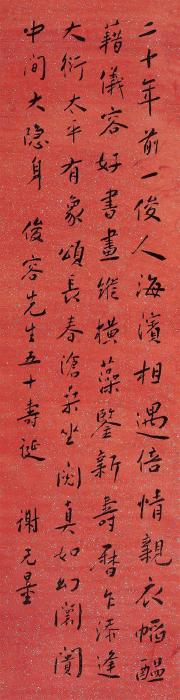 二十年前一俊人海濱相遇倍情親衣幍醖
藉儀容好書畫縱橫藻鑒新壽曆乍添逢
大衍太平有象頌長春滄桑坐閱真如幻闤闠
中間大隐身 俊容先生五十壽誕 謝元量